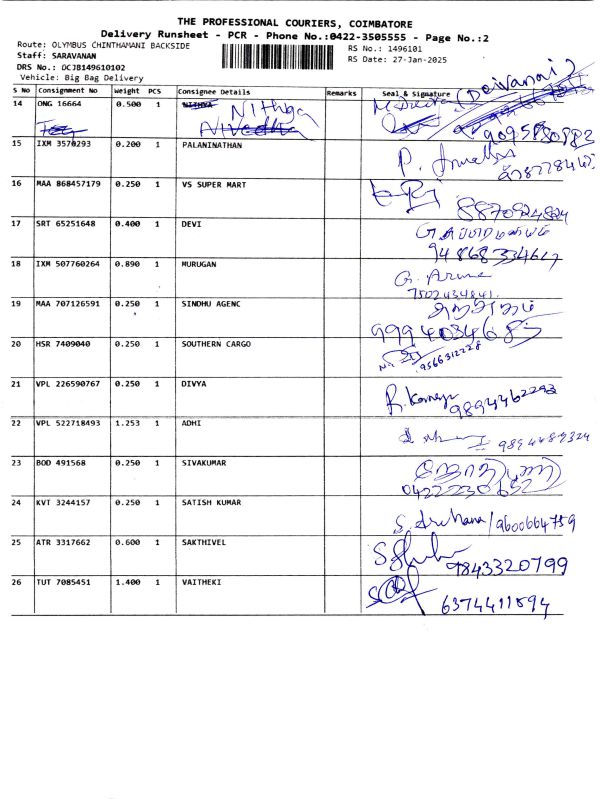 THE PROFESSIONAL COURIERS, COIMBATORE
Delivery Runsheet - PCR - Phone No.:0422-3505555 - Page No.:2
Route: OLYMBUS CHINTHAMANI BACKSIDE
RS No.: 1496101
Staff: SARAVANAN
RS Date: 27-Jan-2025
DRS No.: DCJB149610102
Vehicle: Big Bag Delivery
S No Consignment No Weight PCS Consignee Details Remarks Seal & Signature
14 ONG 16664 0.500 1 Nithya (Deivanai)
15 IXM 3570293 0.200 1 PALANINATHAN
16 MAA 868457179 0.250 1 VS SUPER MART
8870924824
17 SRT 65251648 0.400 1 DEVI
18 IXM 507760264 0.890 1 MURUGAN G. Aruna
7502434841.
19 MAA 707126591 0.250 1 SINDHU AGENC
20 HSR 7409040 0.250 1 SOUTHERN CARGO 9566312228
21 VPL 226590767 0.250 1 DIVYA
9894462293
22 VPL 522718493 1.253 1 ADHI 9894489324
23 BOD 491568 0.250 1 SIVAKUMAR
24 KVT 3244157 0.250 1 SATISH KUMAR
S. Archana/9600664759
25 ATR 3317662 0.600 1 SAKTHIVEL
9843320799
26 TUT 7085451 1.400 1 VAITHEKI
6374411894